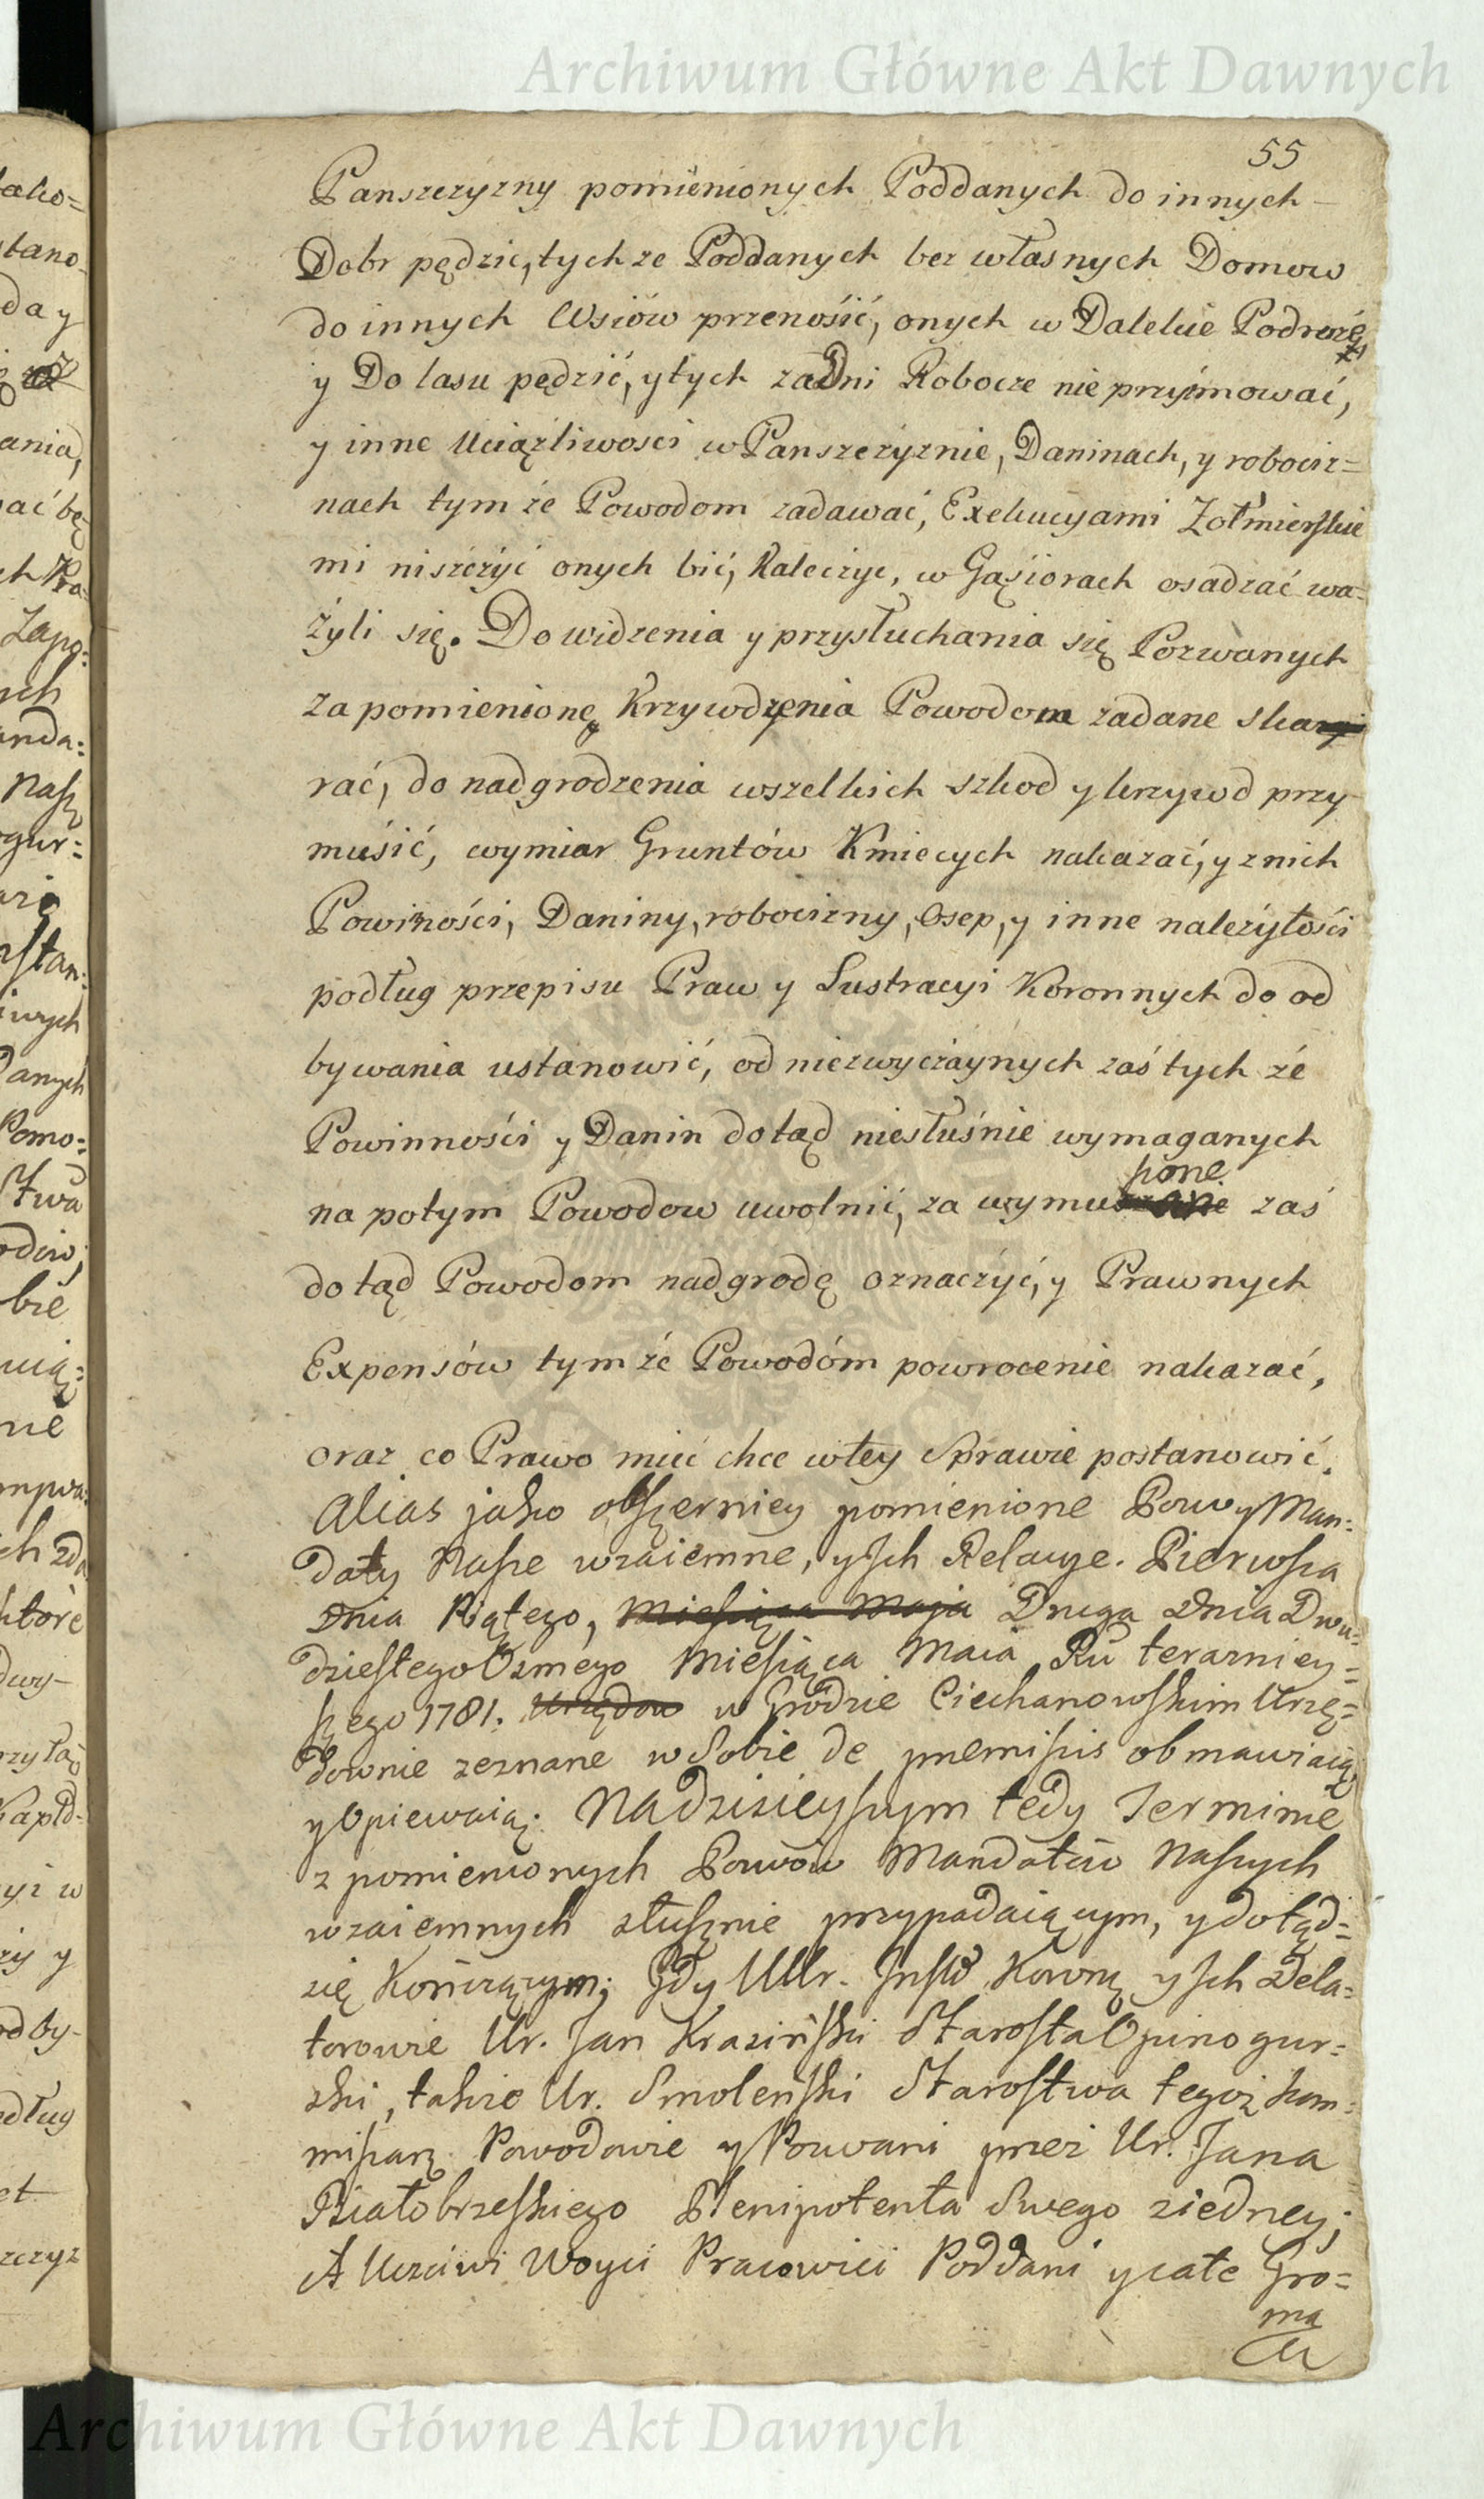 Archiwum Główne Akt Dawnych
55
Panszczyzny pomienionych Poddanych do innych
Dobr pędzic, tych ze Poddanych bez własnych Domow
do innych Wsiów przenośić, onych w Dalekie Podroże
y Do lasu pędzić, y tych za Dni Robocze nie przyimować,
y inne Uciążliwosci w Panszczyznie, Daninach, y robociz=
nach tym że Powodom zadawać, Exekucyami Żołnierskie
mi niszczyć onych bić, Kaleczyc, w Gąsiorach osadzać wa=
żyli się. Do widzenia y przysłuchania się Pozwanych
za pomienione Krzywdzenia Powodom zadane ska
rać, do nadgrodzenia wszelkich szkod y krzywd przy
muśić, wymiar Gruntów Kmiecych nakazać, y z nich
Powiności, Daniny, robocizny, Osep, y inne należytości
podług przepisu Praw y Lustracyi Koronnych do od
bywania ustanowić, od niezwyczaynych zaś tych że
Powinności y Danin dotąd niesłuśnie wymaganych
na potym Powodow uwolnić, za wymuszone zaś
dotąd Powodom nadgrodę oznaczyć, y Prawnych
Expensów tym że Powodóm powrocenie nakazać,
oraz co Prawo mieć chce w tey Sprawie postanowić.
Alias jako obszerniey pomienione Pozwy Man=
daty Nasze wzaiemne, y Ich Relacye. Pierwsza
Dnia Piątego, Miesiąca Maja Druga Dnia Dwu=
dziestego Osmego Miesiąca Maia Ru terazniey=
szego 1781. Urzędow w Grodzie Ciechanowskim Urzę=
downie zeznane w Sobie de premissis obmawiaią
y Opiewaią. Na dzisieyszym tedy Terminie
z pomienionych Pozwów Mandatów Naszych
wzaiemnych słusznie przypadaiącym, y dotąd=
się Kończącym; Gdy UUr. Insty Koronę y Ich Dela=
torowie Ur. Jan Krasiński Starosta Opinogur=
ski, także Ur. Smoleński Starostwa tegoż kom=
misarz Powodowie y Pozwani przez Ur. Jana
Białobrzeskiego Plenipotenta Swego ziedney;
A Uczciwi Woyci Pracowici Poddani y całe Gro=
ma
Archiwum Główne Akt Dawnych